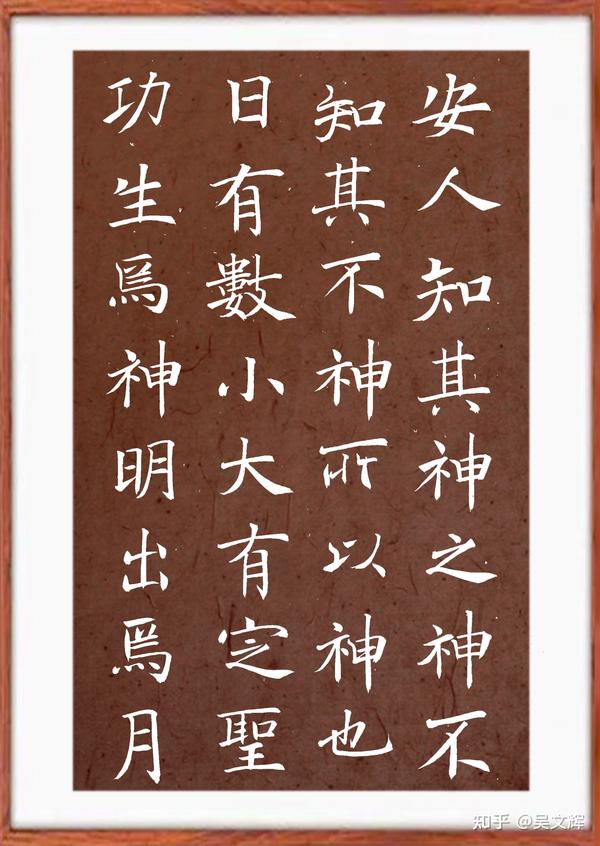 安人知其神之神不
知其不神所以神也
日有數小大有定聖
功生焉神明出焉月
知乎 @吴文辉